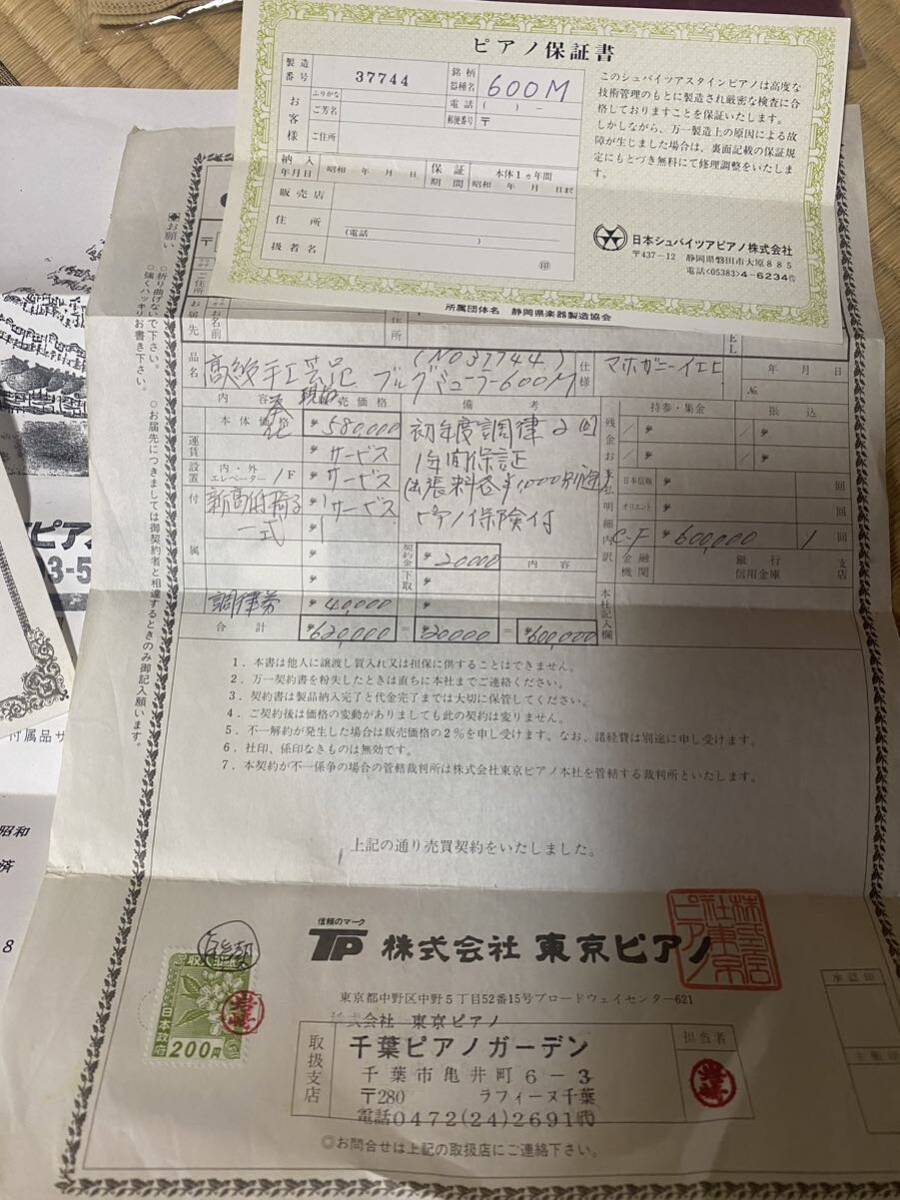 ピアノ保証書
製造番号 37744 銘柄器種名 600M
お客様 ふりがな ご芳名 電話 ( ) －
郵便番号 〒
ご住所
納入年月日 昭和 年 月 日 保証期間 本体1ヵ年間
昭和 年 月 日迄
販売店
住所
(電話 )
扱者名 印
このシュバイツアスタインピアノは高度な
技術管理のもとに製造され厳密な検査に合
格しておりますことを保証いたします。
しかしながら、万一製造上の原因による故
障が生じました場合は、裏面記載の保証規
定にもとづき無料にて修理調整をいたしま
す。
日本シュバイツアピアノ株式会社
〒437-12 静岡県磐田市大原885
電話<05383>4-6234㈹
所属団体名 静岡県楽器製造協会
お願い
○折り曲げないで下さい。
○強くハッキリお書き下さい。
○お届先につきましては御契約者と相違するときのみ御記入願います。
〒
ご住所
お届先 お名前 住所
品名 高級手工芸品 ブルグミューラー600M (NO37744) 仕様 マホガニー 年 月 日
№
内容 現金 売価格 備考
本体価格 580,000 初年度調律2回
運賃 サービス 1年間保証
設置 内・外 エレベーター 1F サービス
付属 新高低椅子一式 サービス ピアノ保険付
契約金 20000 内容
下取
調律券 40,000
合計 620,000 = 20000 = 600,000
残金お支払明細内訳
持参・集金 振込
日本信販 回
オリエント 回
C-F 600,000 1 回
金融機関 銀行 信用金庫 支店
本社記入欄
1．本書は他人に譲渡し質入れ又は担保に供することはできません。
2．万一契約書を粉失したときは直ちに本社までご連絡ください。
3．契約書は製品納入完了と代金完了までは大切に保管してください。
4．ご契約後は価格の変動がありましても此の契約は変りません。
5．不一解約が発生した場合は販売価格の2％を申し受けます。なお、諸経費は別途に申し受けます。
6．社印、係印なきものは無効です。
7．本契約が不一係争の場合の管轄裁判所は株式会社東京ピアノ本社を管轄する裁判所といたします。
上記の通り売買契約をいたしました。
信頼のマーク
TP 株式会社 東京ピアノ
東京都中野区中野5丁目52番15号ブロードウェイセンター621
株式会社 東京ピアノ
取扱支店 千葉ピアノガーデン 担当者
千葉市亀井町6－3
〒280 ラフィーヌ千葉
電話0472(24)2691㈹
◎お問合せは上記の取扱店にご連絡下さい。
承認印
日本政府
200円
ピアノ
03-5
付属品サ
昭和
済
8